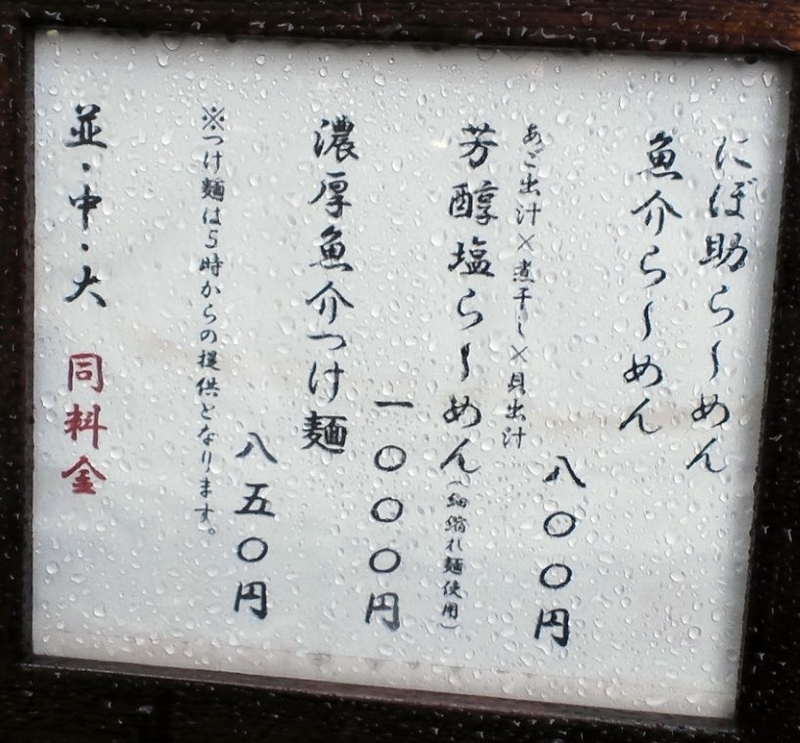 にぼ助らーめん
魚介らーめん
八〇〇円
あご出汁×煮干し×貝出汁
芳醇塩らーめん(細縮れ麺使用)
一〇〇〇円
濃厚魚介つけ麺
八五〇円
※つけ麺は5時からの提供となります。
並・中・大 同料金